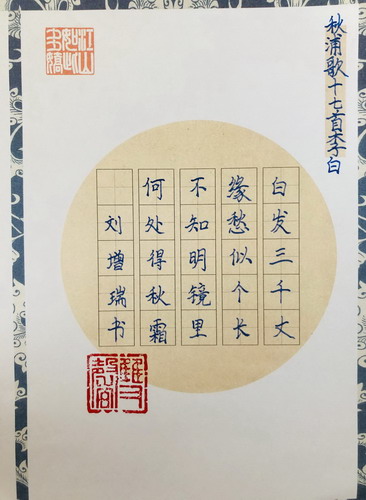 秋浦歌十七首李白
白发三千丈
缘愁似个长
不知明镜里
何处得秋霜
刘增瑞书
江山
如此
多嬌